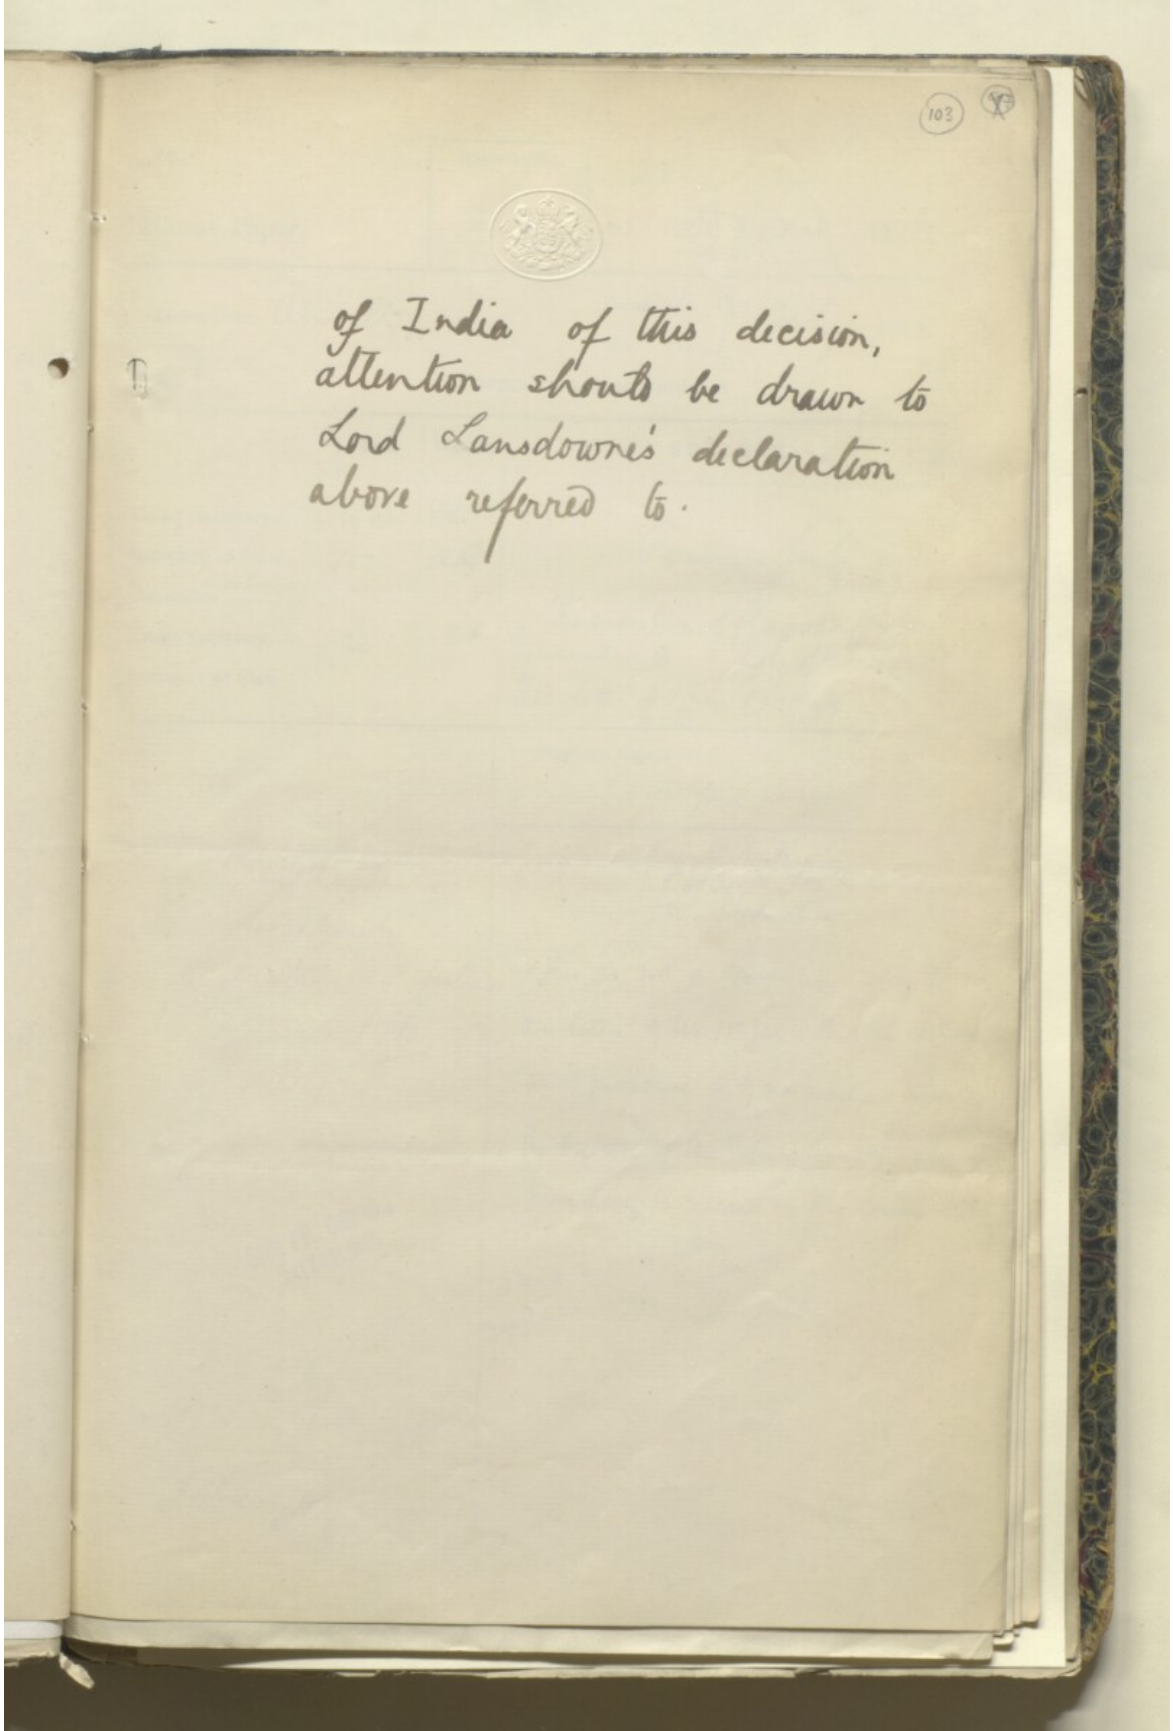 103
of India of this decision,
attention should be drawn to
Lord Lansdowne's declaration
above referred to.